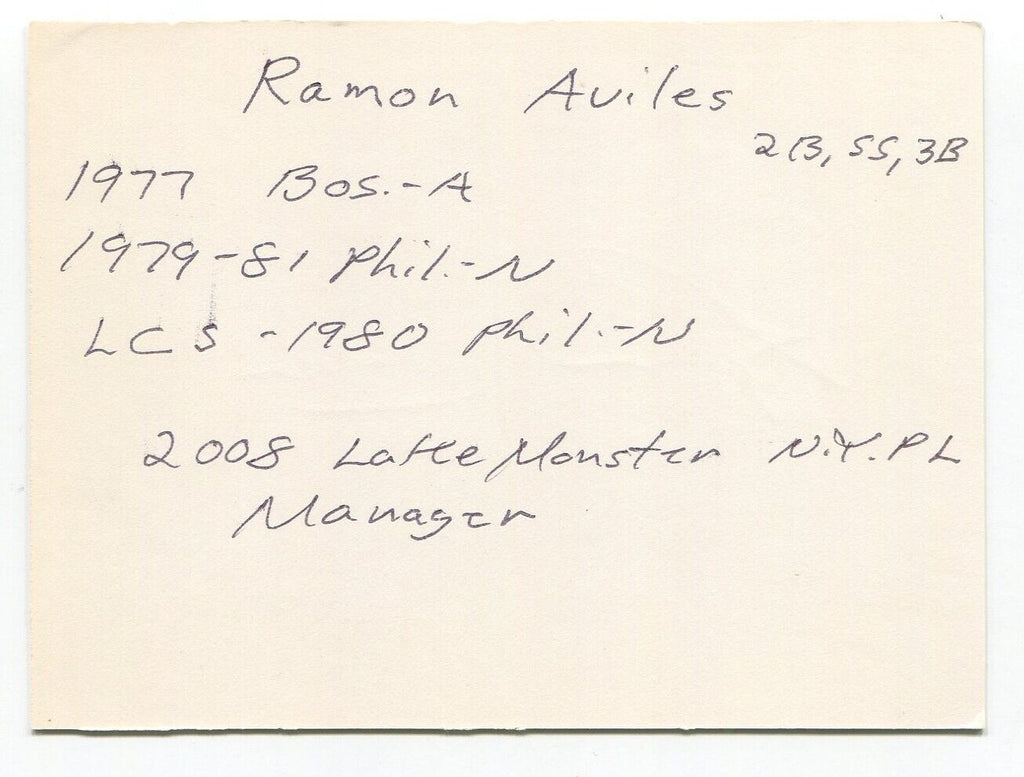 Ramon Aviles
2B, SS, 3B
1977 Bos.-A
1979-81 Phil.-N
LCS -1980 Phil.-N
2008 Lake Monster N.Y.PL
Manager